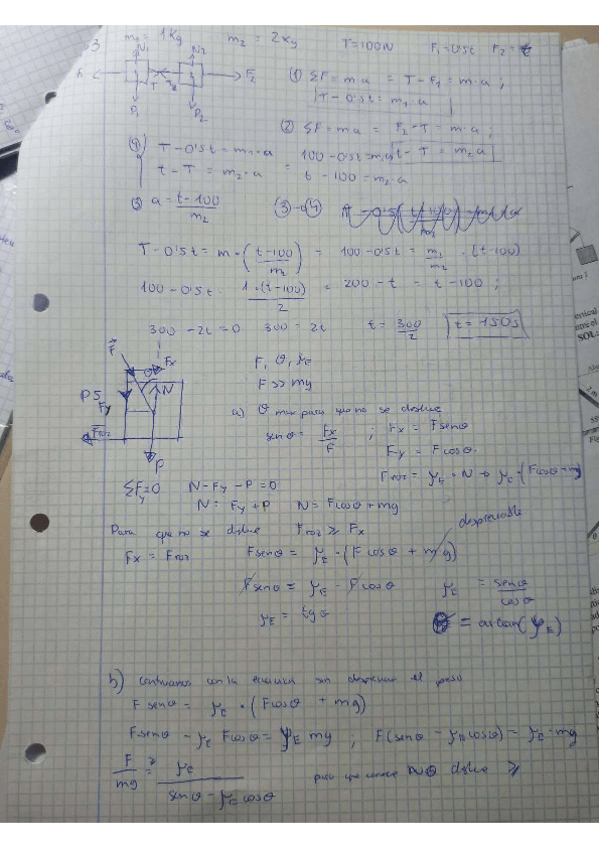 m₁ = 1Kg m₂ = 2Kg T=100N F₁=0'5t F₂=t
N₁ N₂
F₂
T
P₁ P₂
(1) ΣF = m·a = T - F₁ = m·a ;
T - 0'5t = m₁·a
(2) ΣF = m·a = F₂ - T = m·a ;
t - T = m₂·a
T - 0'5t = m₁·a = 100 - 0'5t = m₁·a
t - T = m₂·a t - 100 = m₂·a
(3) a = (t-100)/m₂ (3)→(4)
T - 0'5t = m·((t-100)/m₂) = 100 - 0'5t = m₁/m₂ · (t-100)
100 - 0'5t · 1·(t-100)/2 = 200 - t = t - 100 ;
300 - 2t = 0 300 = 2t t = 300/2 t = 150s
F Fx
θ
N
P5
Fy
Froz
P
F, θ, μE
F >> mg
a) θ max para que no se deslice
senθ = Fx/F ; Fx = Fsenθ
Fy = Fcosθ
Froz = μE · N → μE · (Fcosθ + mg)
ΣFy = 0 N - Fy - P = 0
N = Fy + P N = Fcosθ + mg
Para que no se deslice Froz ≥ Fx
despreciable
Fx = Froz Fsenθ = μE · (F cosθ + mg)
Fsenθ = μE - Fcosθ μE = senθ/cosθ
μE = tgθ
θ = arctan(μE)
b) continuamos con la ecuación sin despreciar el peso
F senθ = μE · (Fcosθ + mg)
Fsenθ - μE Fcosθ = μE mg ; F(senθ - μE cosθ) = μE · mg
F/mg ≥ μE/(senθ - μE cosθ) para que deslice ≥